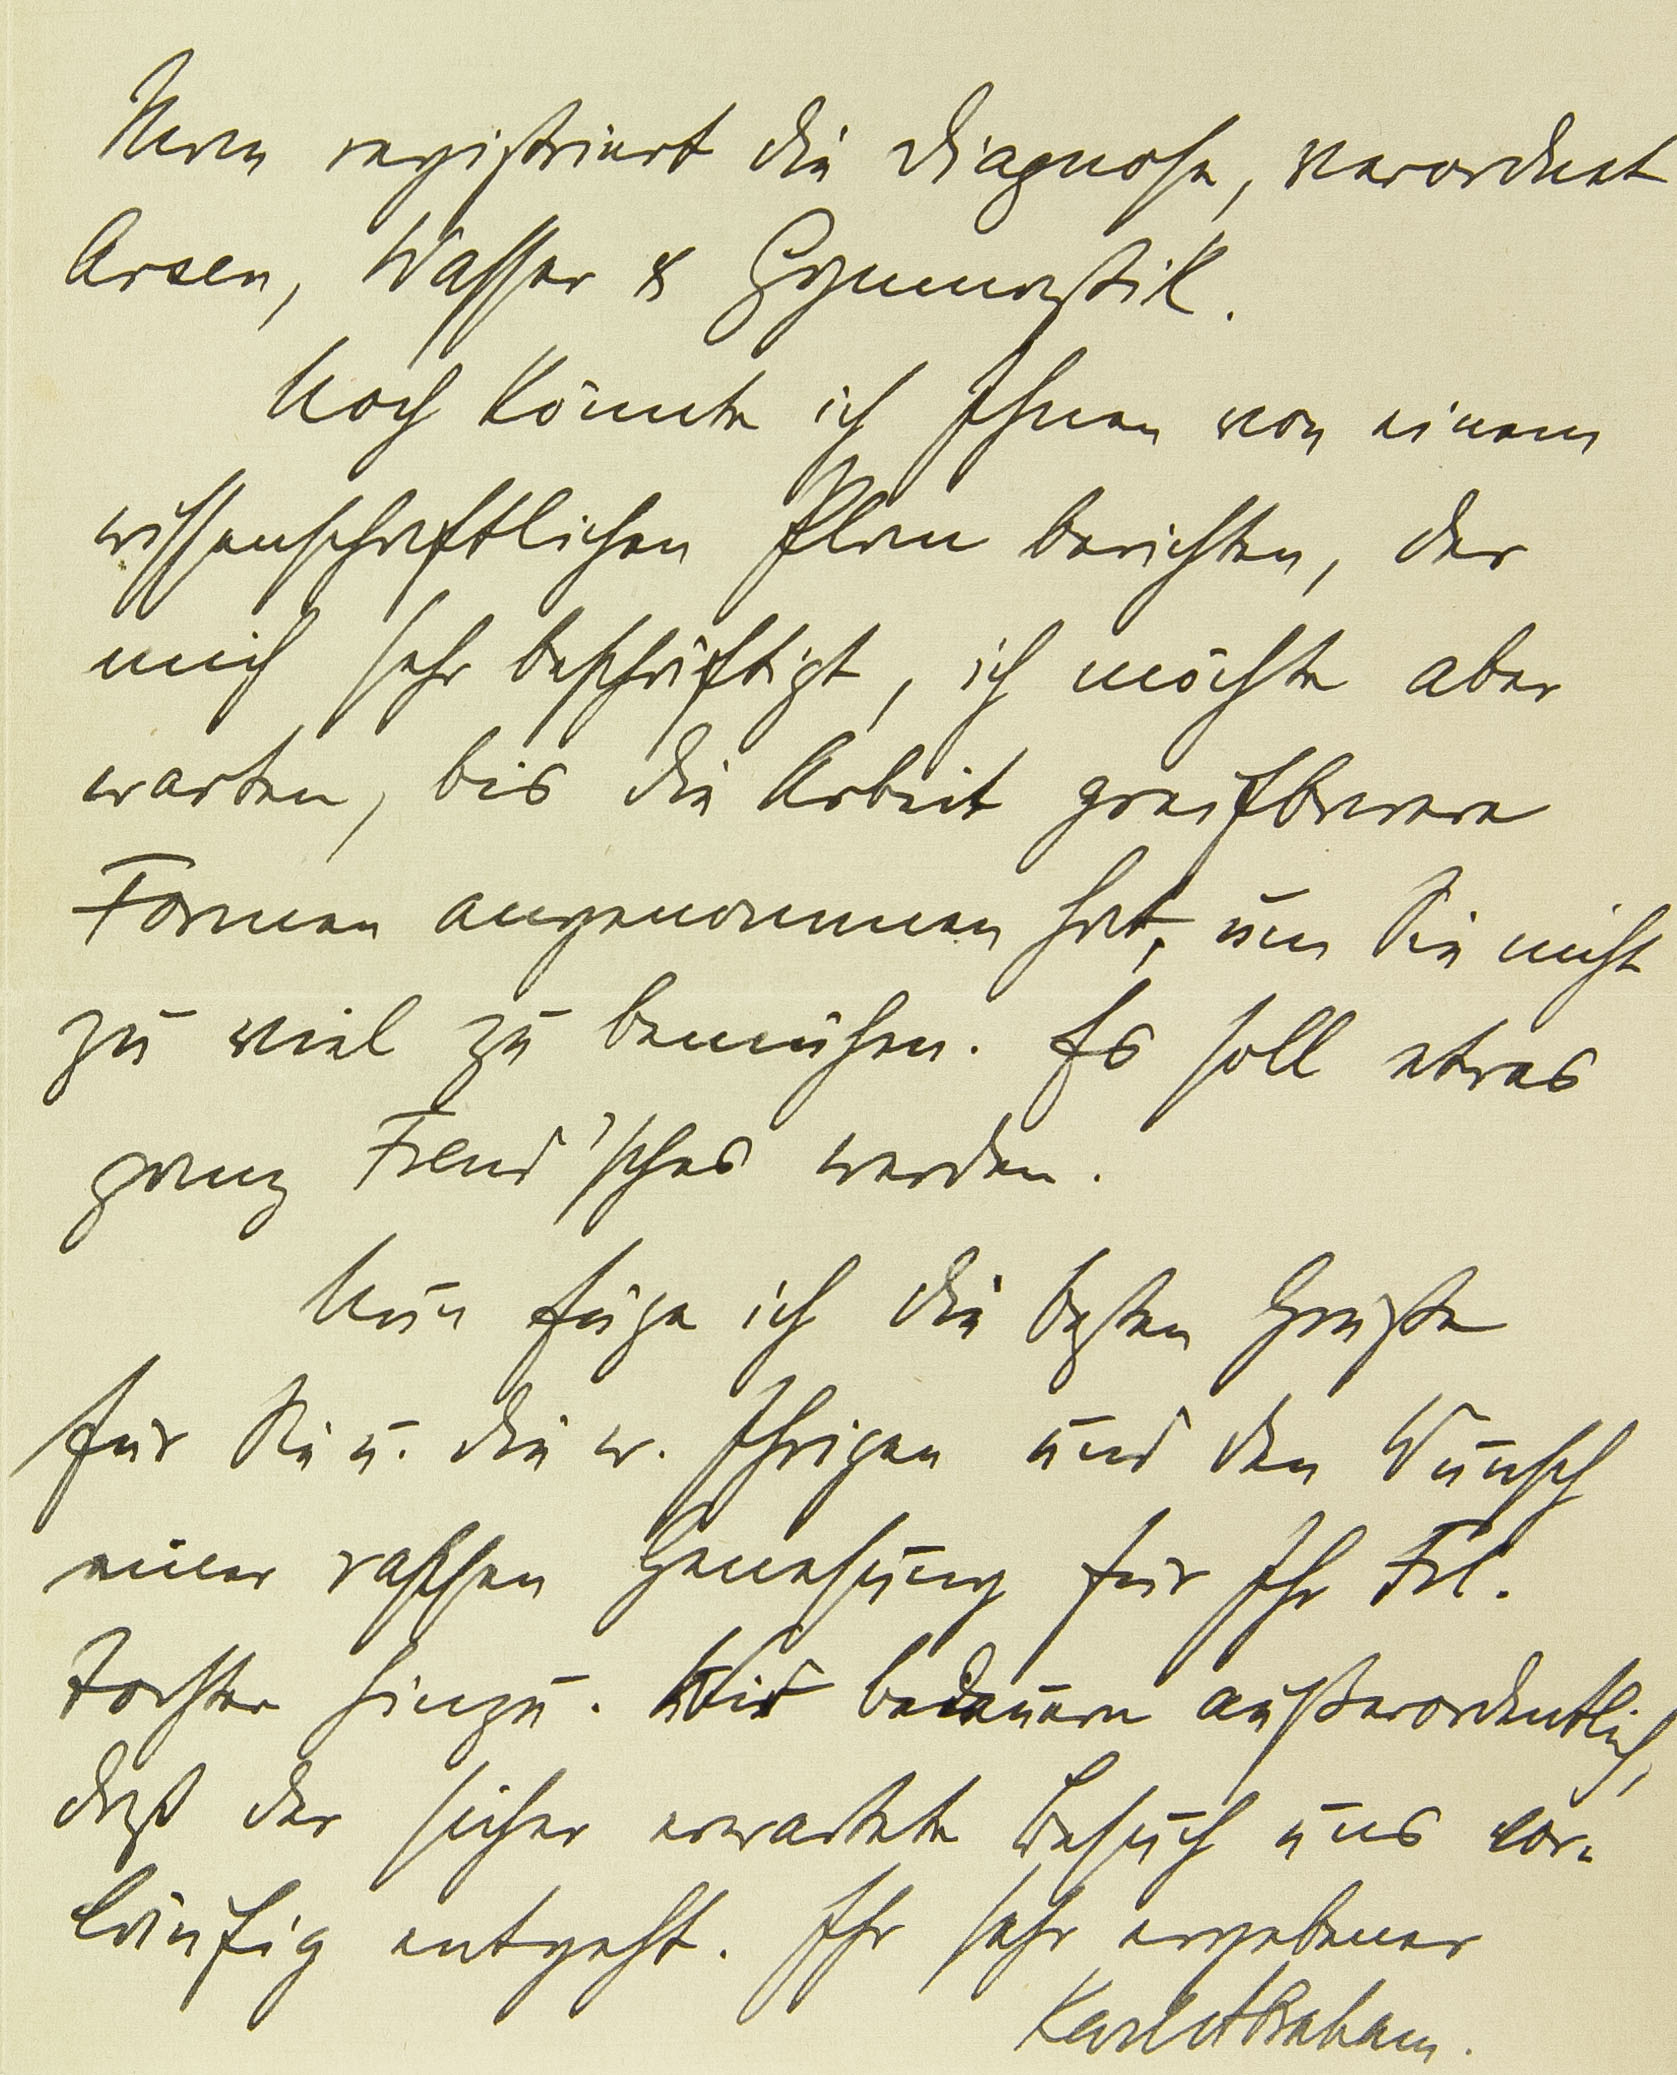 Man registriert die Diagnose, verordnet
Arsen, Wasser & Gymnastik.
Noch könnte ich Ihnen von einem
wissenschaftlichen Plan berichten, der
mich sehr beschäftigt, ich möchte aber
warten, bis die Arbeit greifbarere
Formen angenommen hat, um Sie nicht
zu viel zu bemühen. Es soll etwas
ganz Freud'sches werden.
Nun füge ich die besten Grüße
für Sie u. die w. Ihrigen und den Wunsch
einer raschen Genesung für Ihr Frl.
Tochter hinzu. Wir bedauern außerordentlich,
daß der sicher erwartete Besuch uns vor-
läufig entgeht. Ihr sehr ergebener
Karl Abraham.